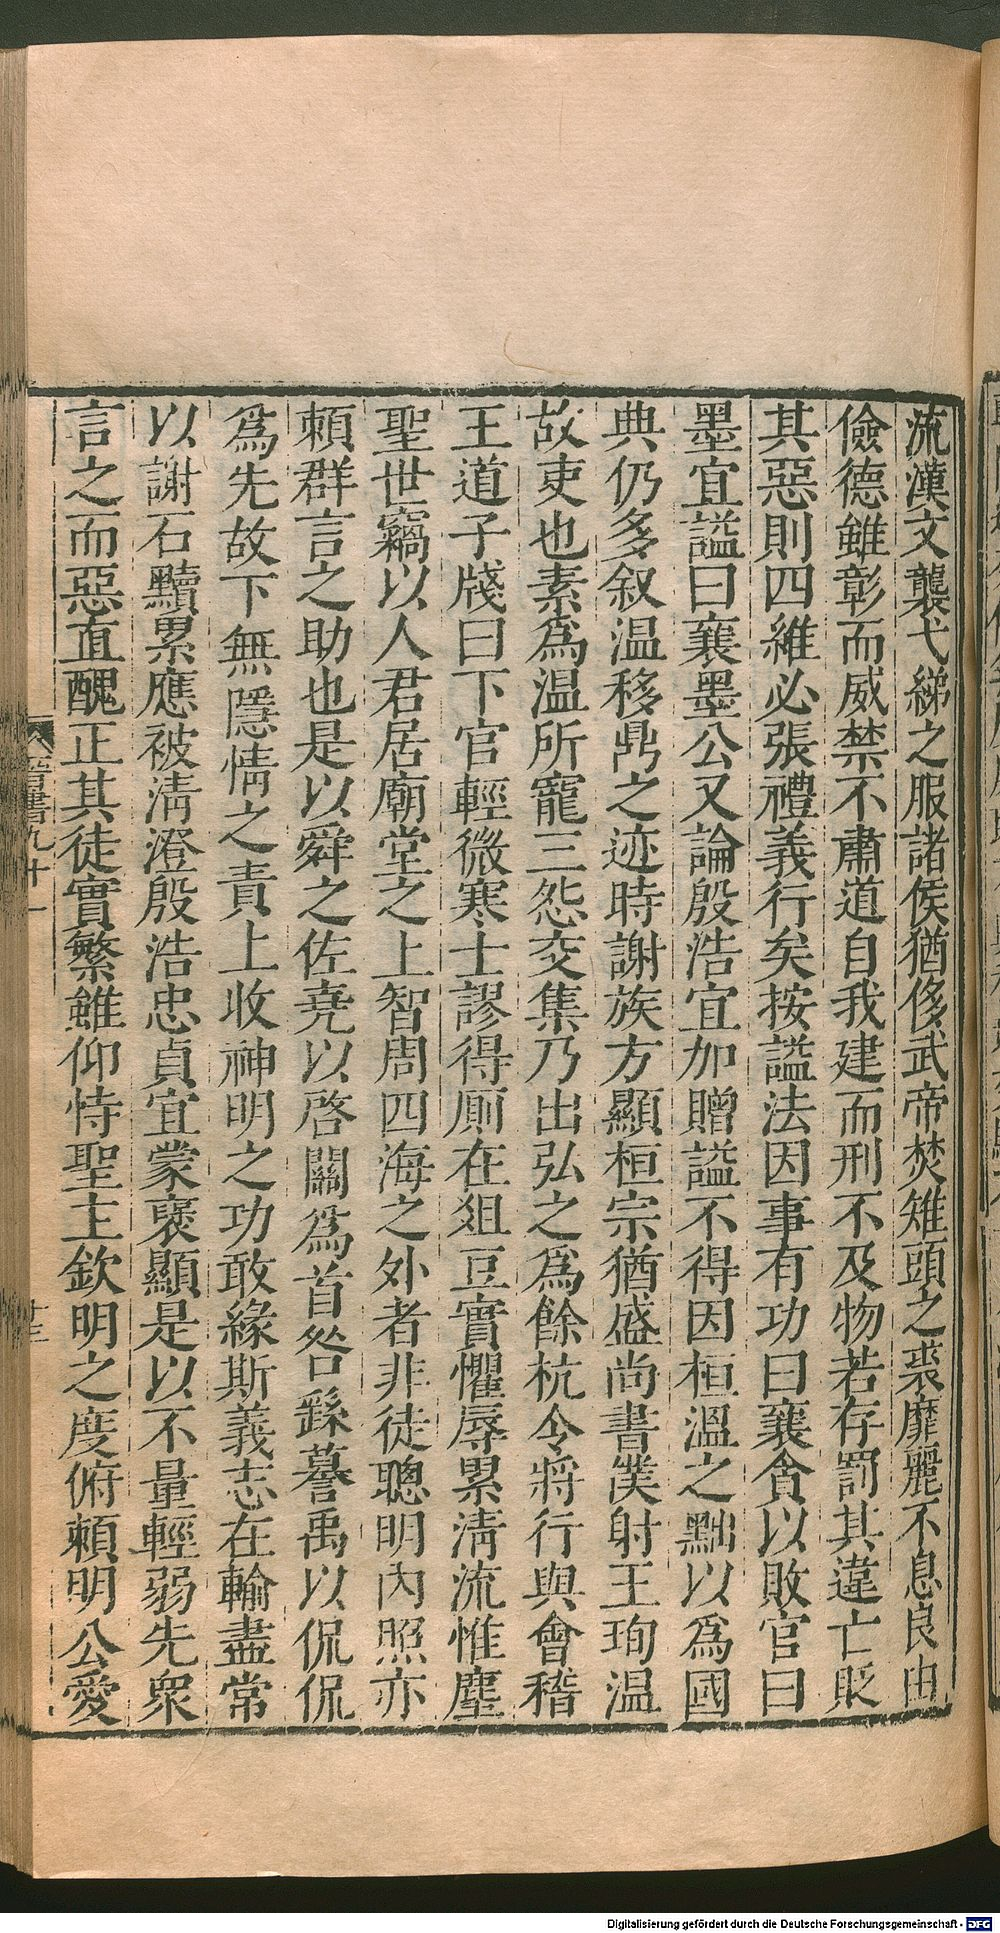 流漢文襲弋綈之服諸侯猶侈武帝焚雉頭之裘靡麗不息良由
儉德雖彰而威禁不肅道自我建而刑不及物若存罰其違亡貶
其惡則四維必張禮義行矣按謚法因事有功曰襄貪以敗官曰
墨宜謚曰襄墨公又論殷浩宜加贈謚不得因桓溫之黜以為國
典仍多叙温移鼎之迹時謝族方顯桓宗猶盛尚書僕射王珣温
故吏也素為温所寵三怨交集乃出弘之為餘杭令將行與會稽
王道子牋曰下官輕微寒士謬得廁在俎豆實懼辱累清流惟塵
聖世竊以人君居廟堂之上智周四海之外者非徒聰明內照亦
賴群言之助也是以舜之佐堯以啓闢為首咎繇謩禹以侃侃
為先故下無隱情之責上收神明之功敢緣斯義志在輸盡常
以謝石黷累應被清澄殷浩忠貞宜蒙褒顯是以不量輕弱先衆
言之而惡直醜正其徒實繁雖仰恃聖主欽明之度俯賴明公愛
晉書九十一
十三
Digitalisierung gefördert durch die Deutsche Forschungsgemeinschaft - DFG